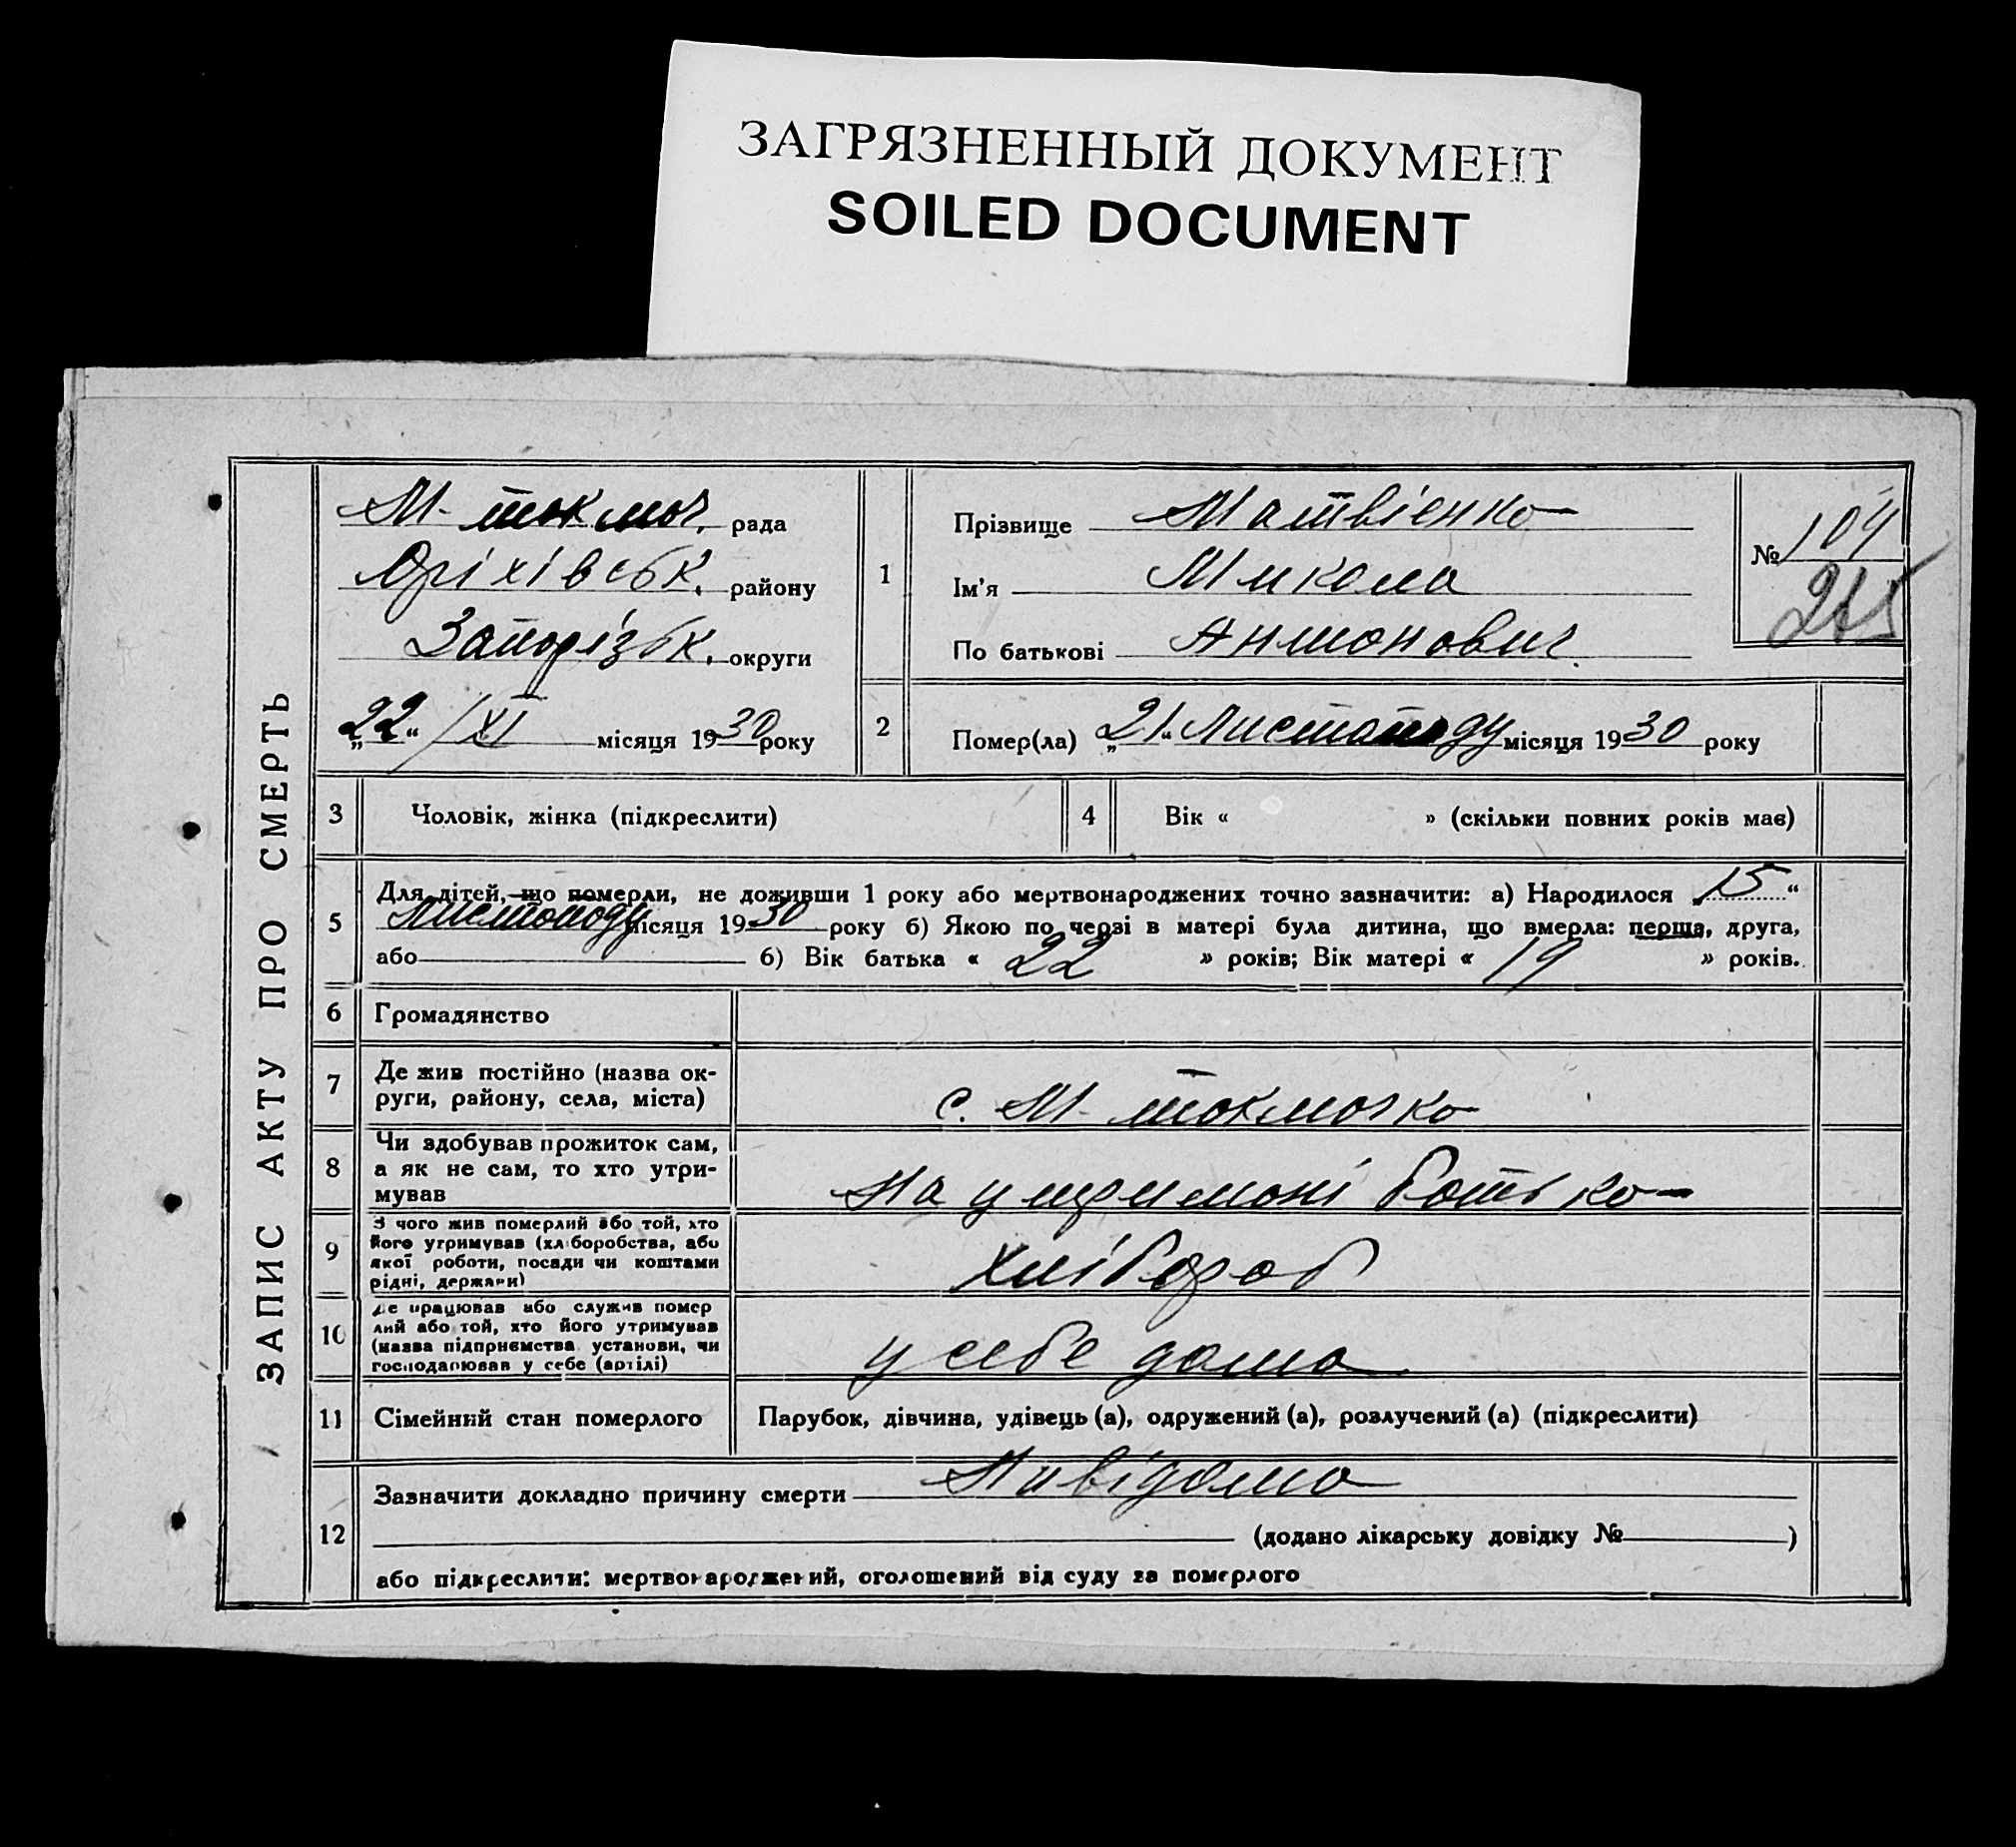 ЗАГРЯЗНЕННЫЙ ДОКУМЕНТ
SOILED DOCUMENT
ЗАПИС АКТУ ПРО СМЕРТЬ
М-Токмач. рада
Оріхівськ. району
Запорізьк. округи
„22“ /XI місяця 1930 року
1
Прізвище Матвієнко
Ім'я Микола
По батькові Антонович
№ 104
2
Помер(ла) „21“ Листопаду місяця 1930 року
3 Чоловік, жінка (підкреслити)
4 Вік « » (скільки повних років має)
5
Для дітей, що померли, не доживши 1 року або мертвонароджених точно зазначити: а) Народилося „15“
Листопаду місяця 1930 року б) Якою по черзі в матері була дитина, що вмерла: перша, друга,
або б) Вік батька « 22 » років; Вік матері « 19 » років.
6 Громадянство
7
Де жив постійно (назва ок-
руги, району, села, міста)
с. М-Токмачка
8
Чи здобував прожиток сам,
а як не сам, то хто утри-
мував
На утримані батька
9
З чого жив померлий або той, хто
його утримував (хліборобства, або
якої роботи, посади чи коштами
рідні, держави)
Хлібороб
10
Де працював або служив помер
лий або той, хто його утримував
(назва підприємства установи, чи
господарював у себе (артілі)
у себе дома
11 Сімейний стан померлого Парубок, дівчина, удівець (а), одружений (а), розлучений (а) (підкреслити)
12
Зазначити докладно причину смерти Нивідома
(додано лікарську довідку № )
або підкреслити: мертвонароджений, оголошений від суду за померлого